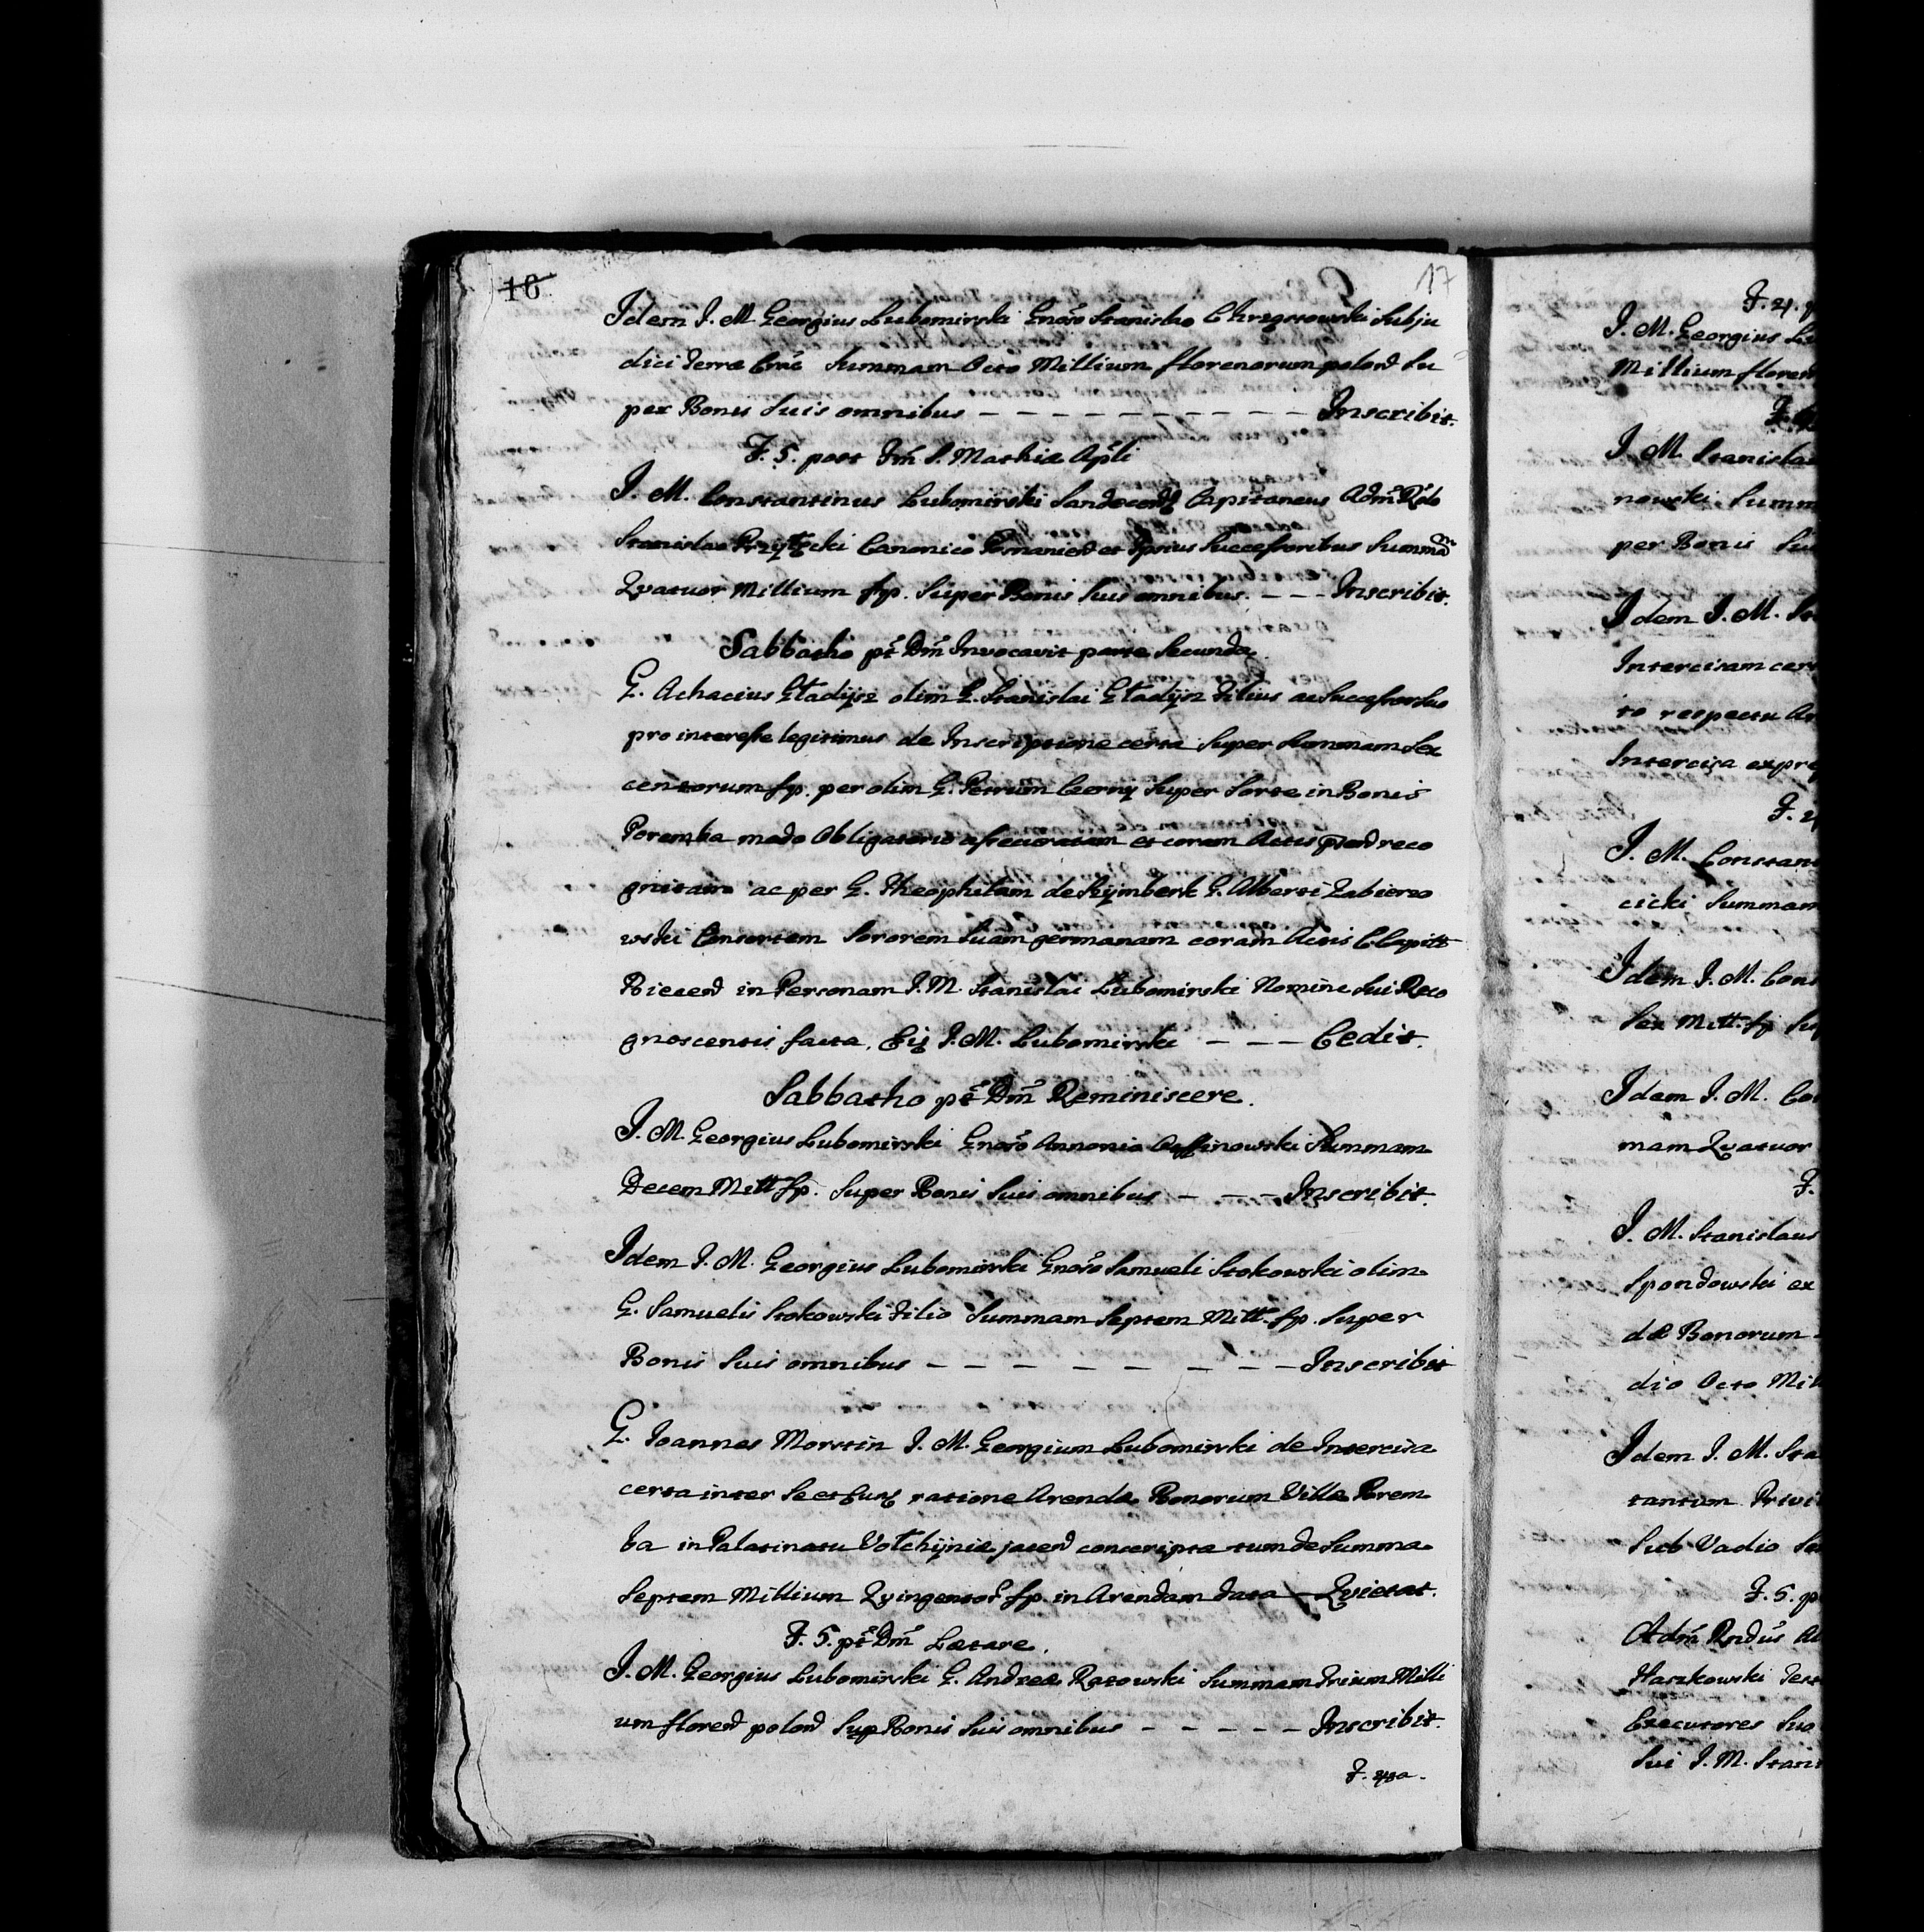 16
17
Idem I. M. Georgius Lubomirski Gnoso Stanislao Chrząstowski Subju
dici Terræ Crac Summam Octo Millium florenorum polond Su
per Bonis Suis omnibus – – – – – – – – – – Inscribit.
F. 5. post Fm S. Mathiæ Apli
I. M. Constantinus Lubomirski Sandecen Capitaneus Adm Rndo
Stanislao Przyłęcki Canonico et Ipsius Successoribus Summam
Qvatuor Millium fp. Super Bonis Suis omnibus. – – – Inscribit.
Sabbatho pt Dm Invocavit parte Secunda.
G. Achacius Gładijsz olim G. Stanislai Gładijsz Filius ac Successor Suo
pro interesse legitimus de Inscriptione certa Super Summam Sex
centorum fp. per olim G. Petrum Czerny Super Sorte in Bonis
Poremba modo Obligatorio assecuratam et coram Actis reco
gnitam ac per G. Theophilam de Rymberk G. Alberti
wski Consortem Sororem Suam germanam coram Actis C Capitt
Biecen in Personam I. M. Stanislai Lubomirski Nomine Sui Reco
gnoscentis facta, I. M. Lubomirski – – – Cedit.
Sabbatho pt Dm Reminiscere.
I. M. Georgius Lubomirski Gnoso Summam
Decem Mitt fp. Super Bonis Suis omnibus – – – Inscribit.
Idem I. M. Georgius Lubomirski Gnoso Samueli Stokowski olim
G. Samuelis Stokowski Filio Summam Septem Mitt. fp. Super
Bonis Suis omnibus – – – – – – – – Inscribit
G. Joannes Morstin I. M. Georgium Lubomirski de Intercisa
certa inter Se et ratione Arendæ Bonorum Villæ Porem
ba in Palatinatu Volhijniæ jacen conscripta tum de Summa
Septem Millium Qvingentor fp. in Arendam data – Qvietat.
F. 5. pt Dm Lætare.
I. M. Georgius Lubomirski G. Andreæ Summam Trium Milli
um floren polon Sup Bonis Suis omnibus – – – – – Inscribit.
F. 4ta.
I. M. Georgius Lu
Millium floren
I. M. Stanislaus
nowski Summ
per Bonis Su
Idem I. M.
Intercisam cer
to respectu Ar
Intercisa expre
I. M. Constan
cicki Summam
Idem I. M. Con
Sex Mitt. fp Su
Idem I. M. Co
mam Qvatuor
F.
I. M. Stanislaus
Spondowski ex
dæ Bonorum
dio Octo Mil
Idem I. M. Sta
tantum Privi
Sub Vadio
F. 5. p
Adm Rndus Al
Haszkowski Test
Executores Suo
Sui I. M. Stani